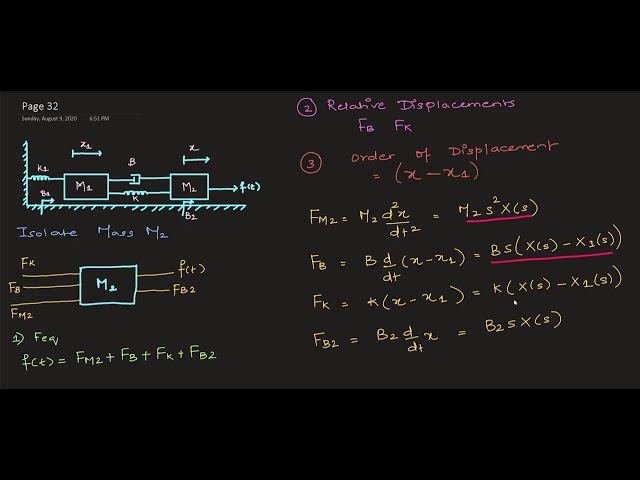 Page 32
Sunday, August 9, 2020 6:51 PM
x1
x
K1
B
B1
M1
M2
f(t)
K
B2
Isolate Mass M2
FK
f(t)
FB
M2
FB2
FM2
1) Feq
f(t) = FM2 + FB + FK + FB2
2 Relative Displacements
FB FK
3 Order of Displacement
= (x - x1)
FM2 = M2 d²x/dt² = M2 s² X(s)
FB = B d/dt (x - x1) = B s(X(s) - X1(s))
FK = K(x - x1) = K(X(s) - X1(s))
FB2 = B2 d/dt x = B2 s X(s)